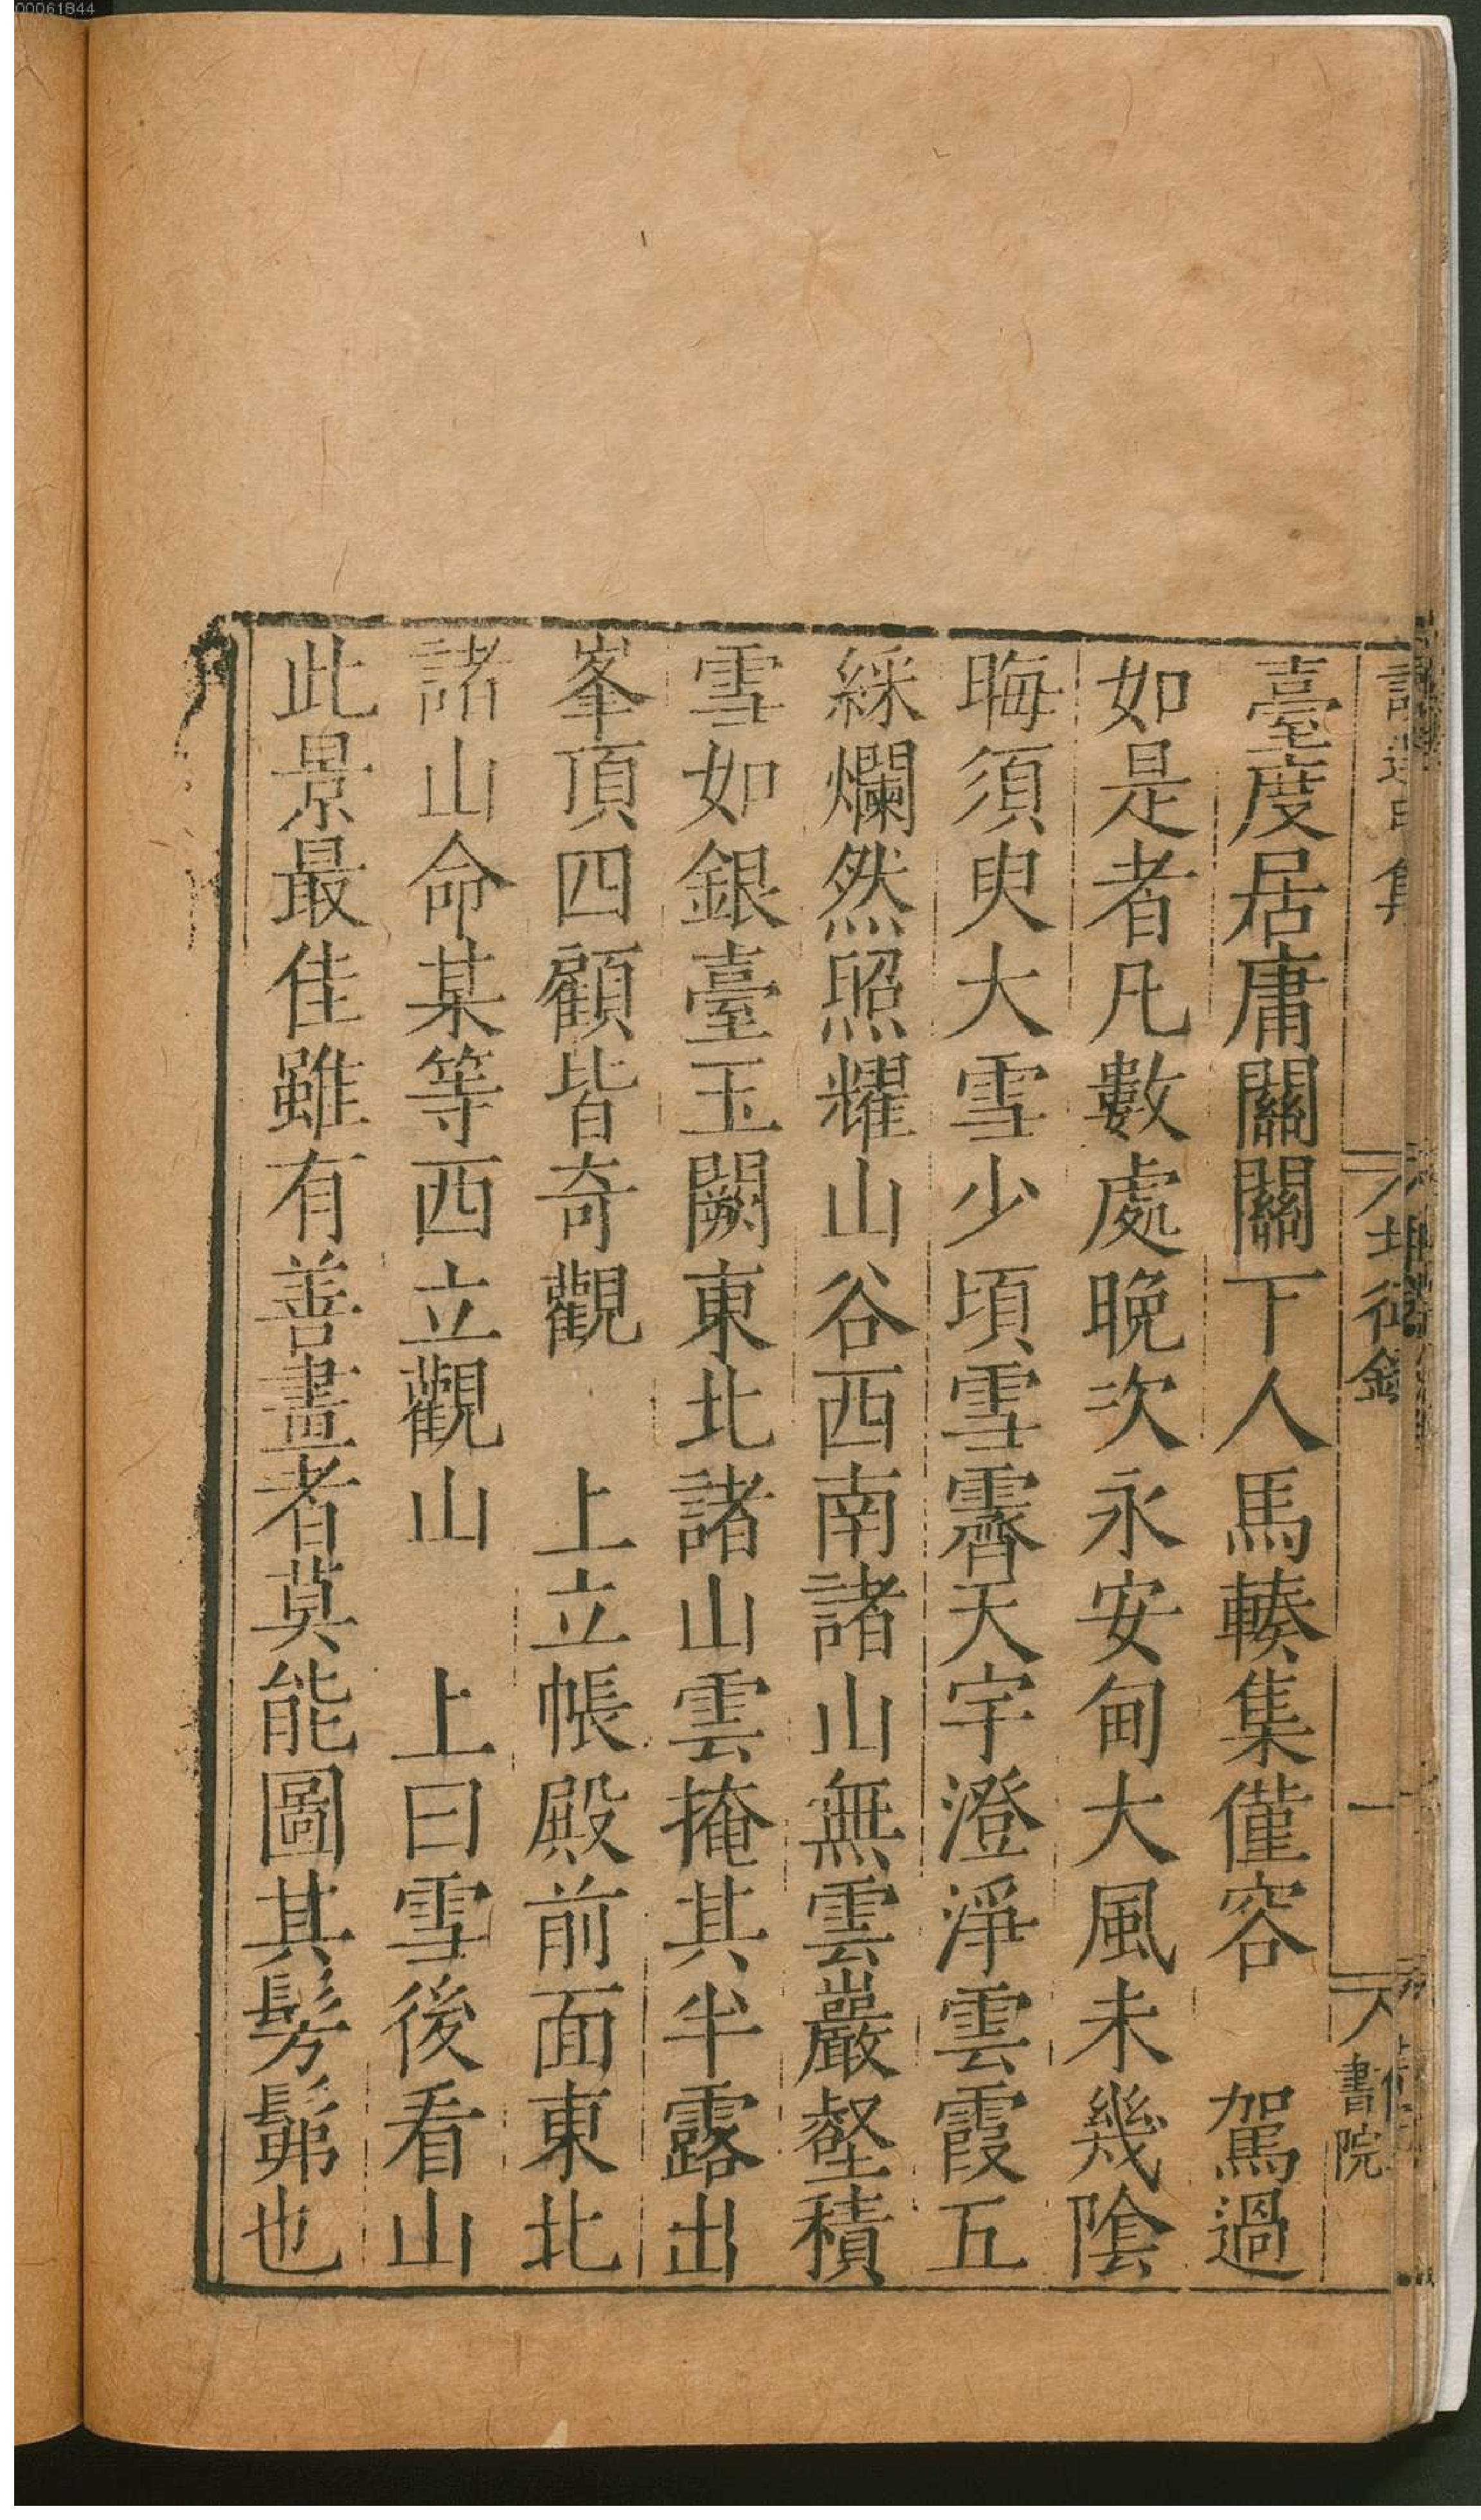 臺度居庸關關下人馬輳集僅容　駕過
如是者凡數處晩次永安甸大風未幾陰
晦須臾大雪少頃雪霽天宇澄淨雲霞五
綵爛然照耀山谷西南諸山無雲巖壑積
雪如銀臺玉闕東北諸山雲掩其半露出
峯頂四顧皆奇觀　上立帳殿前面東北
諸山命某等西立觀山　上曰雪後看山
此景最佳雖有善畫者莫能圖其髣髴也
書院
00061844